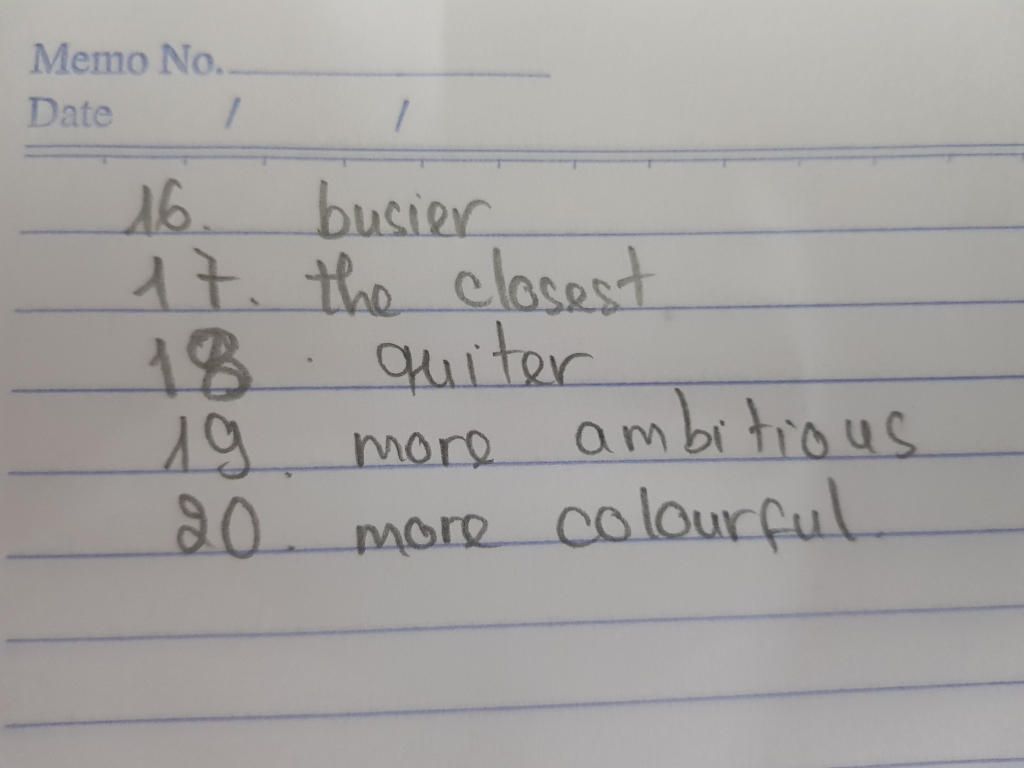 Memo No.
Date / /
16. busier
17. the closest
18. quiter
19. more ambitious
20. more colourful